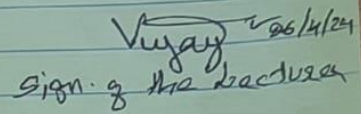 Vijay 26/4/24
Sign. of the Lecturer